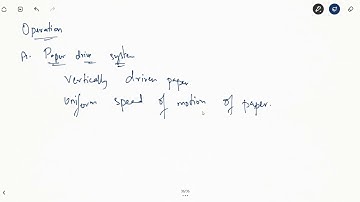 Operation
A. Paper drive system
vertically driven paper
uniform speed of motion of paper.